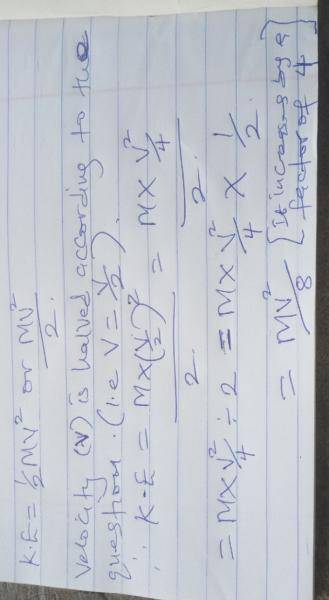 K.E = ½MV² or MV²/2.
Velocity (V) is halved according to the
question. (i.e V = V/2).
∴ K.E = M×(V/2)²/2 = M×V²/4/2.
= M×V²/4 ÷ 2 = M×V²/4 × 1/2.
= MV²/8 [It increases by a
factor of 4]